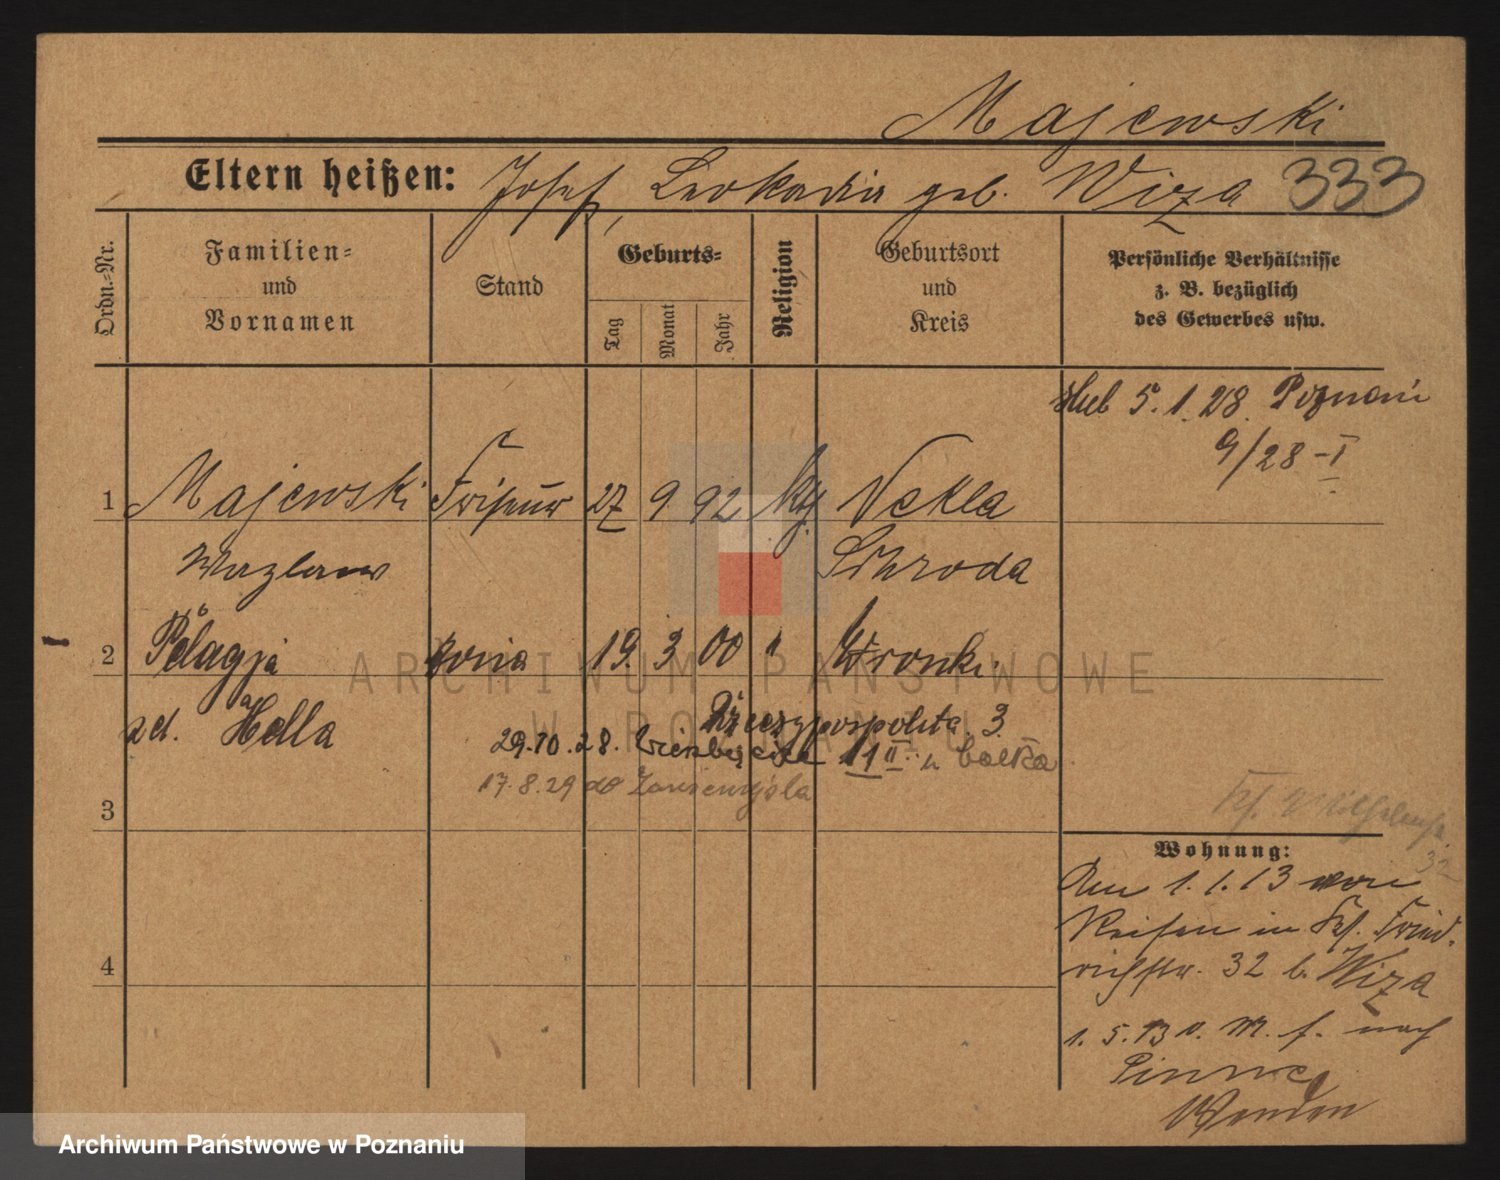 Majewski
Eltern heißen: Josef, Leokadia geb. Wiza 333
Ordn.-Nr.
Familien-
und
Vornamen
Stand
Geburts-
Tag
Monat
Jahr
Religion
Geburtsort
und
Kreis
Persönliche Verhältnisse
z. B. bezüglich
des Gewerbes usw.
5. 1. 28. Poznań
9/28 - I
1 Majewski Friseur 27 9. 92 Nekla
Wazlaw Schroda
2 Pelagja żona 19. 3 00 " Wronki
zd. Hella
Rzeczypospolita. 3
29.10.28. Wierzbięcice 11 II. u Bolka
17.8.29 do Zaniemyśla
3
32
Wohnung:
Am 1. 1. 13 von
Reisen in Fried-
richstr. 32 b. Wiza
1. 5. 13 v. M. f. nach
Pinne
Wenden
4
ARCHIWUM PAŃSTWOWE
W POZNANIU
Archiwum Państwowe w Poznaniu